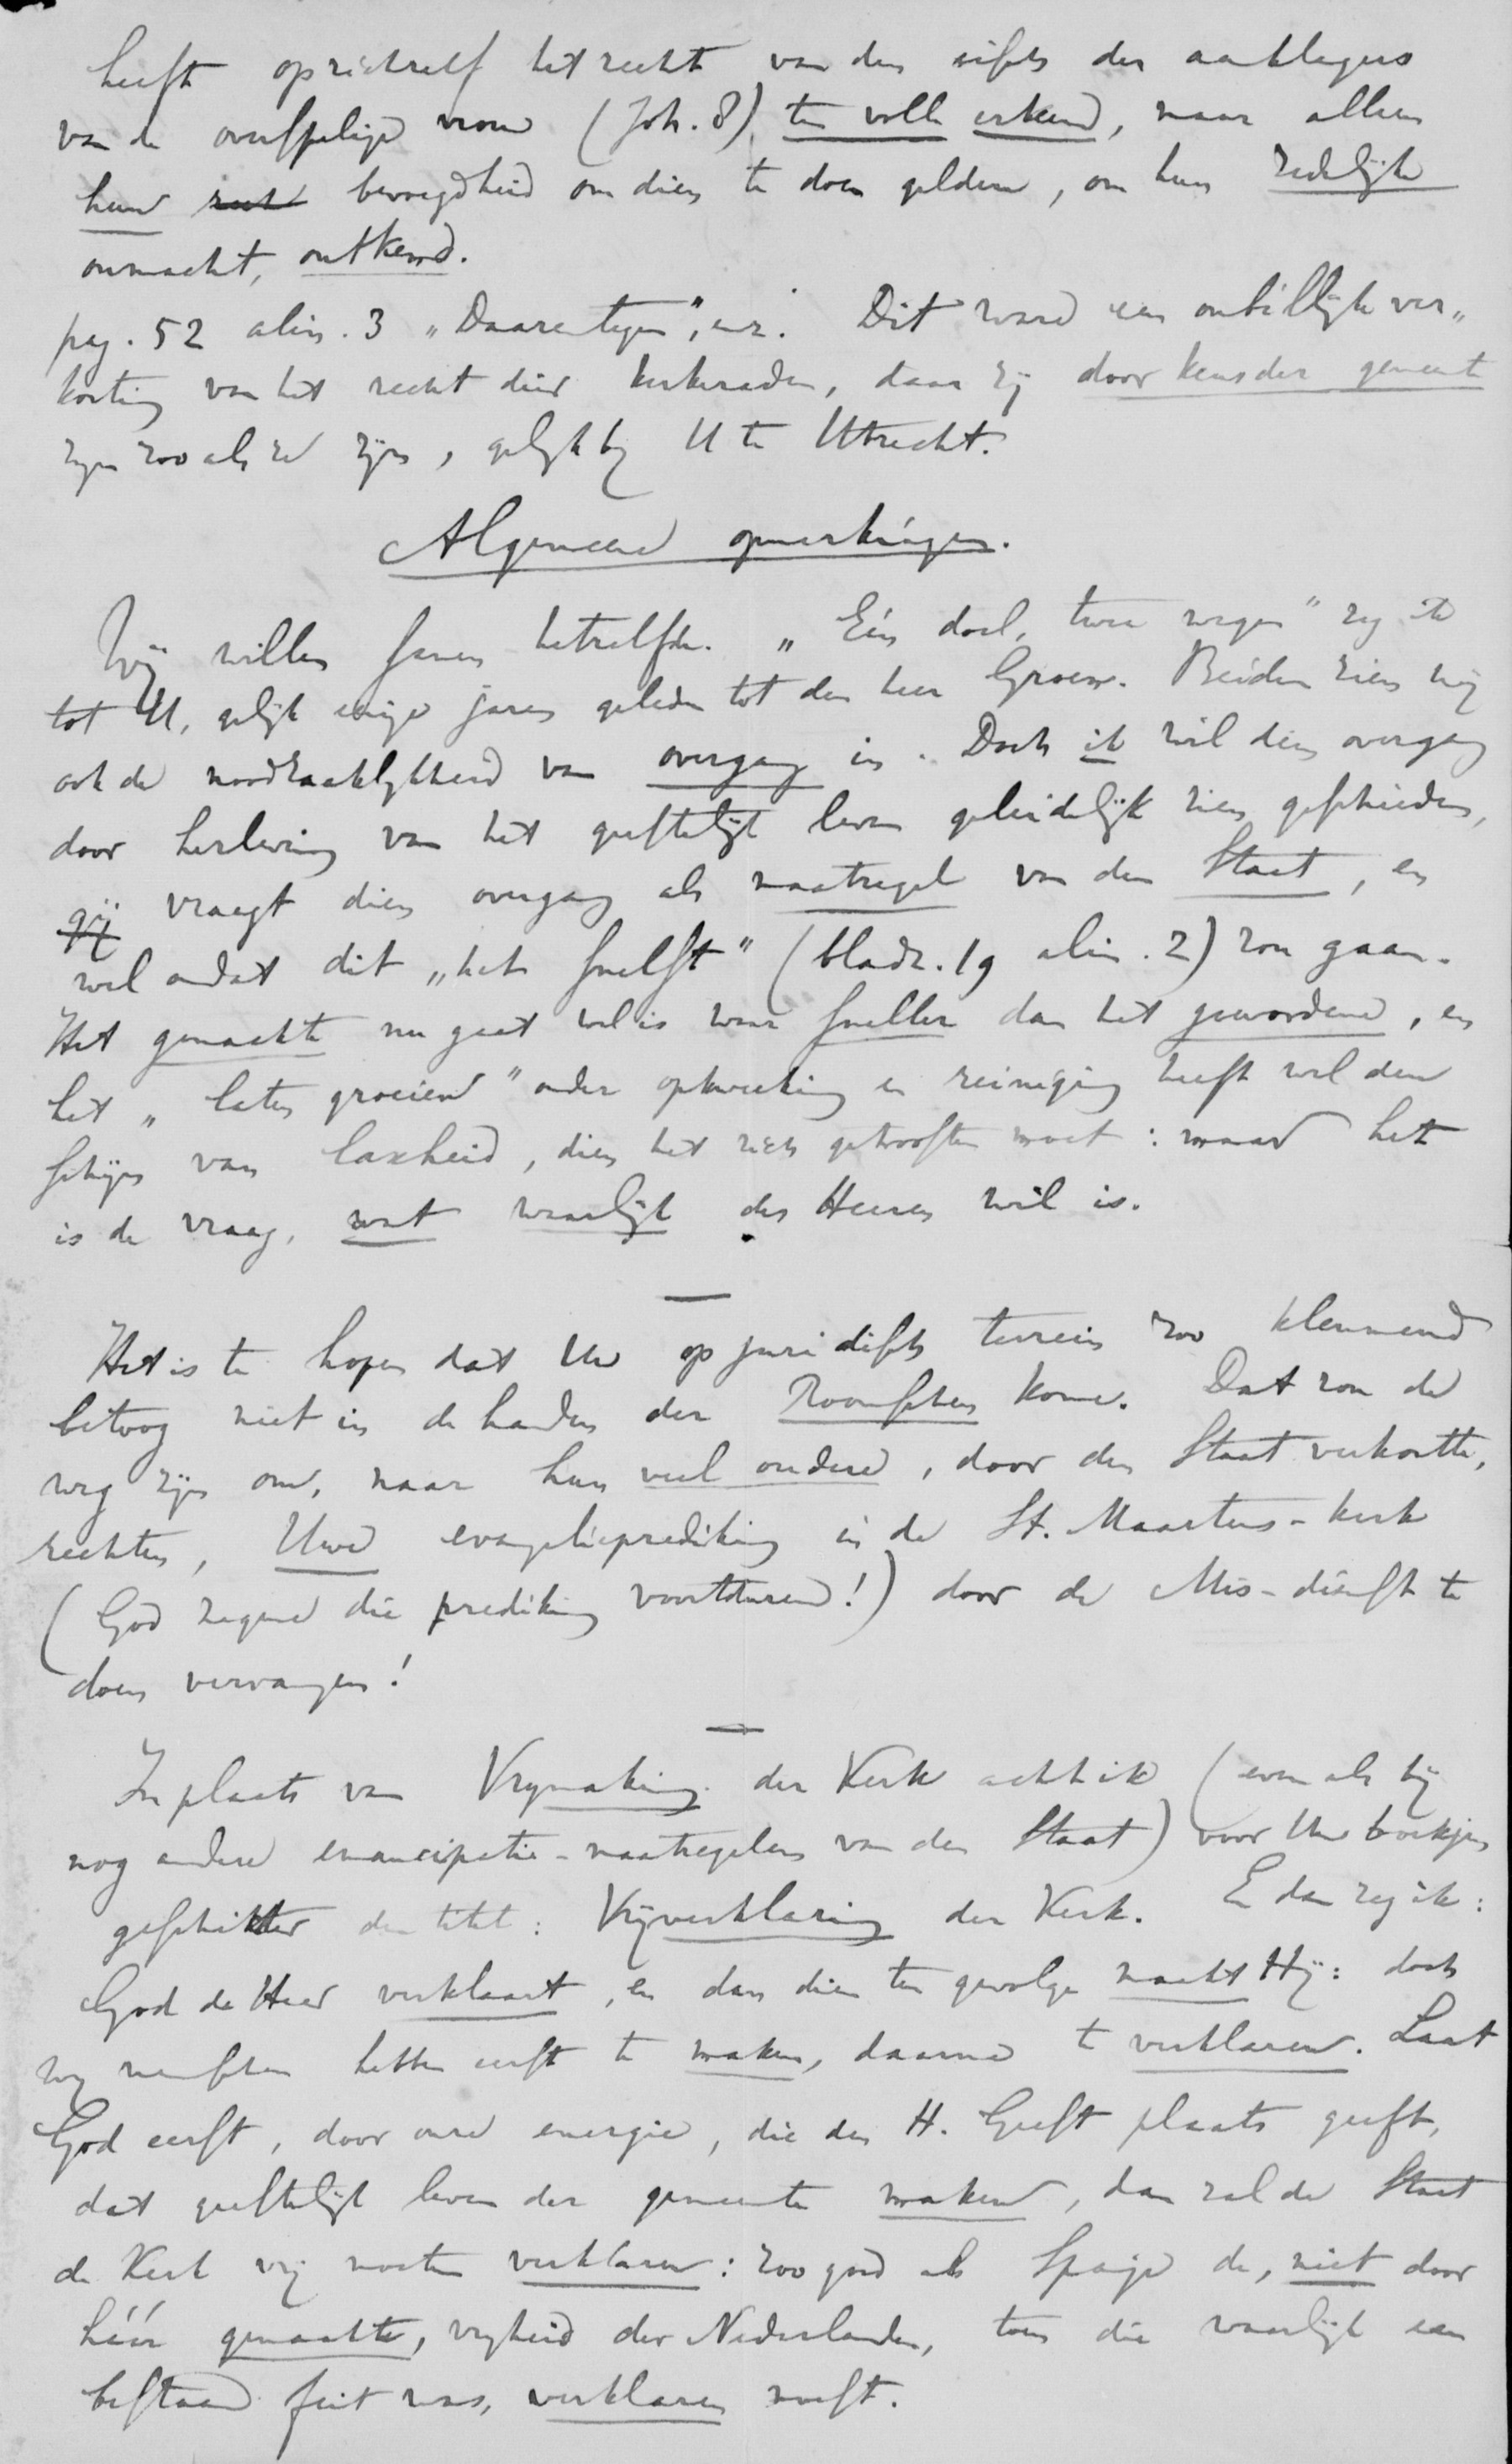 heeft opzichzelf het recht van den eisch der aanklagers
van de overspelige vrouw (Joh. 8) ten volle erkend, maar alleen
hun recht bevoegdheid om dien te doen gelden, om hun zedelijke
onmacht, ontkend.
pag. 52 alin. 3 „Daarentegen", enz. Dit ware een onbillijke ver„
korting van het recht dier kerkeraden, daar zij door keus der gemeente
zijn zooals ze zijn, gelijk bij U te Utrecht.
Algemeene opmerkingen.
Wij willen samen hetzelfde. „Eén doel, twee wegen" zeg ik
tot U, gelijk eenige jaren geleden tot den heer Groen. Beiden zien wij
ook de noodzaaklijkheid van overgang in. Doch ik wil dien overgang
door herleving van het geestelijk leven geleidelijk zien geschieden,
gij vraagt dien overgang als maatregel van den Staat, en
wel omdat dit „het snelst" (bladz. 19 alin. 2) zou gaan.
Het gemaakte nu gaat wel is waar sneller dan het gewordene, en
het „laten groeien" onder opkweeking en reiniging heeft wel den
schijn van laxheid, dien het zich getroosten moet: maar het
is de vraag, wat waarlijk des Heeren wil is.
Het is te hopen dat Uw op juridisch terrein zoo klemmend
betoog niet in de handen der Roomschen kome. Dat zou de
weg zijn om, naar hun veel oudere, door den Staat verkortte,
rechten, Uwe evangelieprediking in de St. Maartens-kerk
(God zegene die prediking voortdurend!) door de Mis-dienst te
doen vervangen!
In plaats van Vrijmaking der Kerk acht ik (evenals bij
nog andere emancipatie-maatregelen van den Staat) voor Uw boekjen
geschikter den titel: Vrijverklaring der Kerk. En dan zeg ik:
God de Heer verklaart, en dan dien ten gevolge maakt Hij: doch
wij menschen hebben eerst te maken, daarna te verklaren. Laat
God eerst, door onze energie, die den H. Geest plaats geeft,
dat geestelijk leven der gemeente maken, dan zal de Staat
de Kerk vrij moeten verklaren: zoo goed als Spanje de, niet door
háár gemaakte, vrijheid der Nederlanden, toen die waarlijk een
bestaand feit was, verklaren moest.